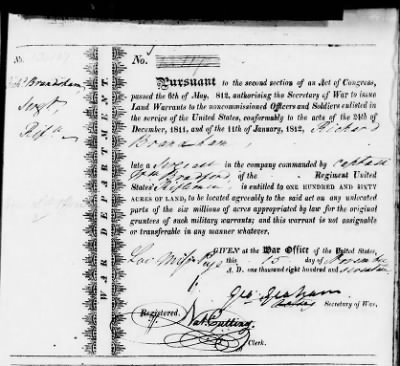 No.
Rich.d Branaham,
Serg.t,
Rifle
WAR DEPARTMENT.
No.
Pursuant to the second section of an Act of Congress,
passed the 6th of May, 812, authorising the Secretary of War to issue
Land Warrants to the noncommissioned Officers and Soldiers enlisted in
the service of the United States, conformably to the acts of the 24th of
December, 1811, and of the 11th of January, 1812, Richard
Branaham,
late a Sergeant in the company commanded by captain
Wm Bradford, of the Regiment United
States's Riflemen is entitled to ONE HUNDRED AND SIXTY
ACRES OF LAND, to be located agreeably to the said act on any unlocated
parts of the six millions of acres appropriated by law for the original
grantees of such military warrants; and this warrant is not assignable
or transferable in any manner whatever.
GIVEN at the War Office of the United States,
this 15 day of November
A. D. one thousand eight hundred and seventeen
Geo: Graham
Secretary of War.
Registered,
Nat. Cutting,
Clerk.